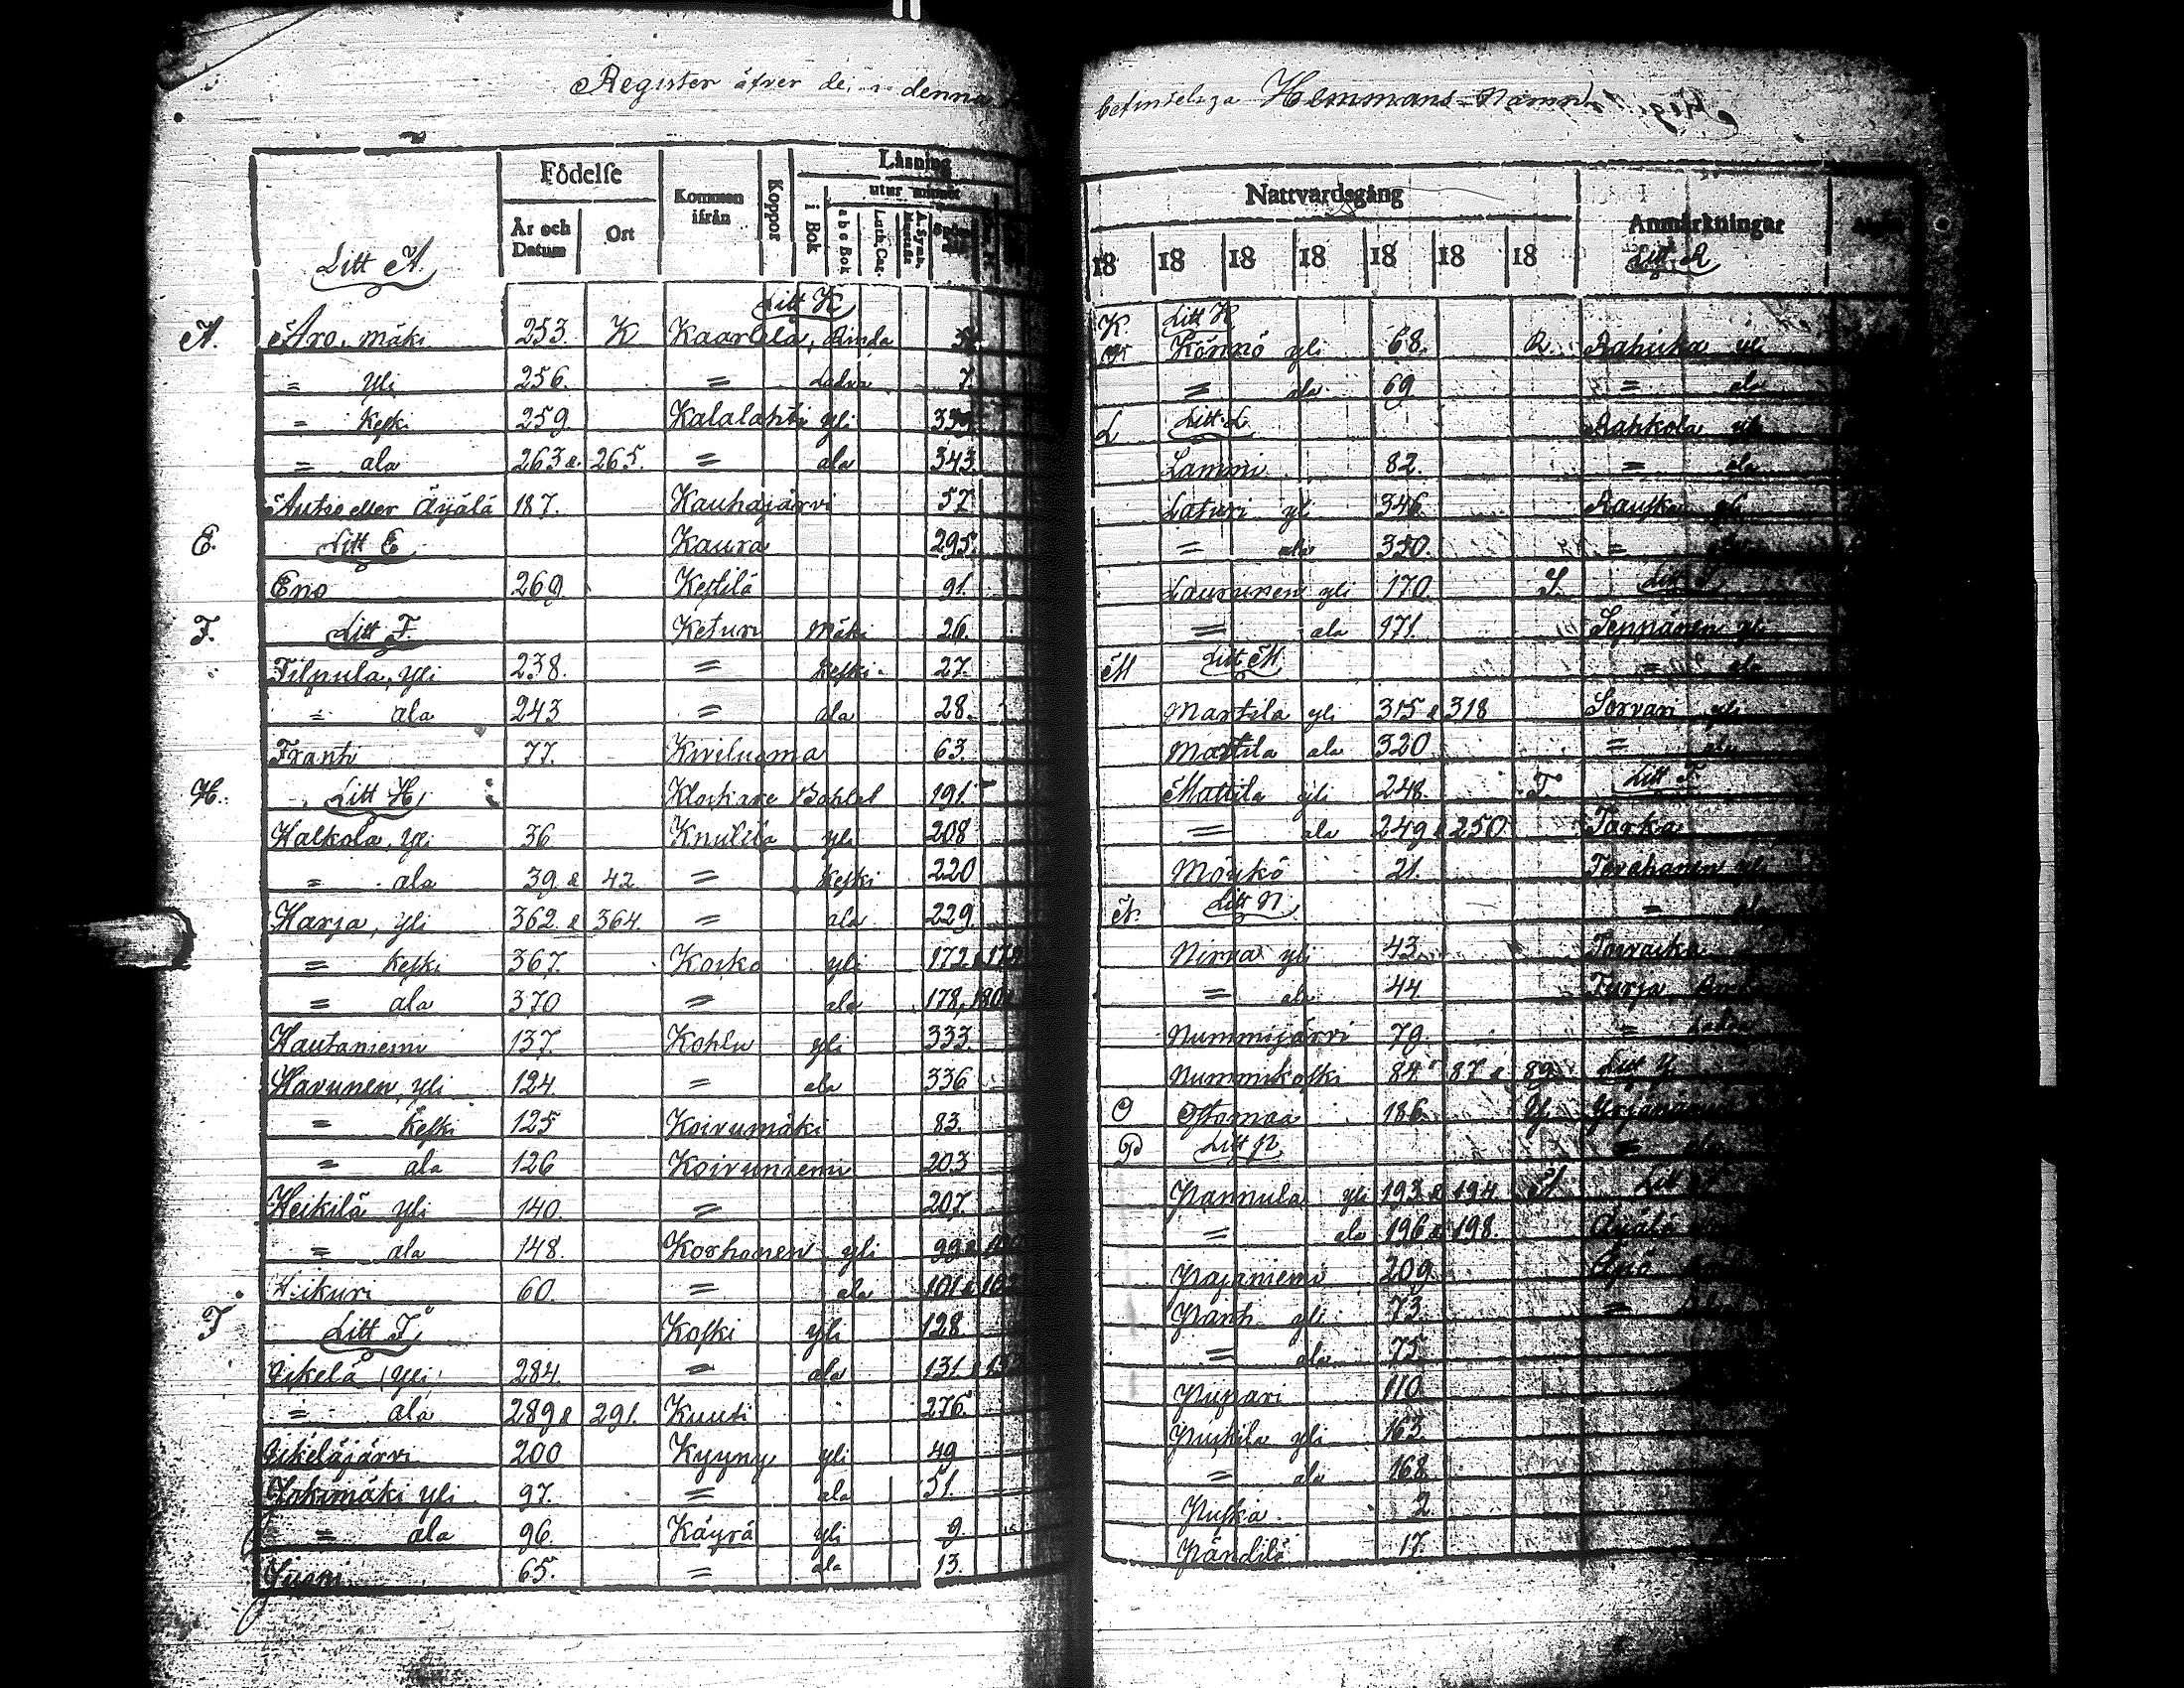 Register öfver de i denna
befinteliga Hemmans-Namn
Födelse
År och Datum
Ort
Kommen ifrån
Koppor
Läsning
utur minnet
i Bok
abc Bok
Luth. Cat.
Litt A.
Litt K
A. Aro, mäki 253.
= Yli 256.
= Keski 259
= ala 263 & 265.
Autio eller Äijälä 187.
E. Litt E
Eno 269
F. Litt F.
Filpula, Yli 238.
= ala 243
Franti 77.
H. Litt H
Halkola, Yli 36
= ala 39 & 42
Harja, Yli 362 & 364.
= Keski 367.
= ala 370
Hautaniemi 137.
Havunen, Yli 124.
= Keski 125
= ala 126
Heikilä yli 140.
= ala 148.
60.
Litt I
Ikelä, yli 284.
= ala 289 & 291.
Ikeläjärvi 200
Jokimäki yli 97.
= ala 96.
Jussi 65.
K Kaarlela, Rinda
= Ladva 7.
Kalalahti yli 339
= ala 343
Kauhajärvi 57.
Kaura 295.
Keskilä 91.
Keturi Mäki 26.
= Keski 27.
= ala 28.
Kiviluoma 63.
Klockare Bohlet 191.
Knuutila yli 208
= Keski 220
= ala 229.
Koiko yli 172
= ala 178, 180
Kohlu yli 333.
= ala 336
Koivumäki 83.
Koivuniemi 203
= 207.
Korhonen yli 99 &
= ala 101 &
Koski yli 128
= ala 131.
Kuuti 276.
Kyyny yli 49
= ala 51.
Käyrä yli 9
= ala 13.
Nattvardsgång
Anmärkningar
18 18 18 18 18 18 18
Litt R
K. Litt K
Könnö yli 68.
= ala 69
L Litt L
Lammi 82.
Laturi yli 346
= ala 350.
Laurunen yli 170.
= ala 171.
M Litt M
Martila yli 315 & 318
Martila ala 320
Mattila yli 248.
= ala 249 & 250
Möykö 21.
N. Litt N
Nirva yli 43.
= ala 44.
Nummijärvi 79.
Nummikoski 84. 87 & 89
O Ostomaa 186
P Litt P
Pannula yli 193 & 194
= ala 196 & 198.
Pajaniemi 209
Panti yli 73.
= ala 75.
Piipari 110
Puskila yli 163
= ala 168
Puska 2
Pändilä 17.
R. Rahikka yli
= ala
Rahkola yli
= ala
Rauska yli
S. Litt S
Seppänen yli
= ala
Sorvari yli
= ala
T Litt T
Tarka
Torehanen yli
= ala
Toivaika
Turja
= Ladva
Litt Y
Y. Yrjänäinen
= ala
Äijälä
Äijö